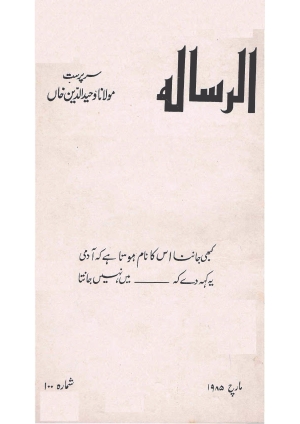 الرسالہ
سرپرست
مولانا وحید الدین خاں
کبھی جاننا اس کا نام ہوتا ہے کہ آدمی
یہ کہہ دے کہ ——— میں نہیں جانتا
مارچ ۱۹۸۵
شمارہ ۱۰۰